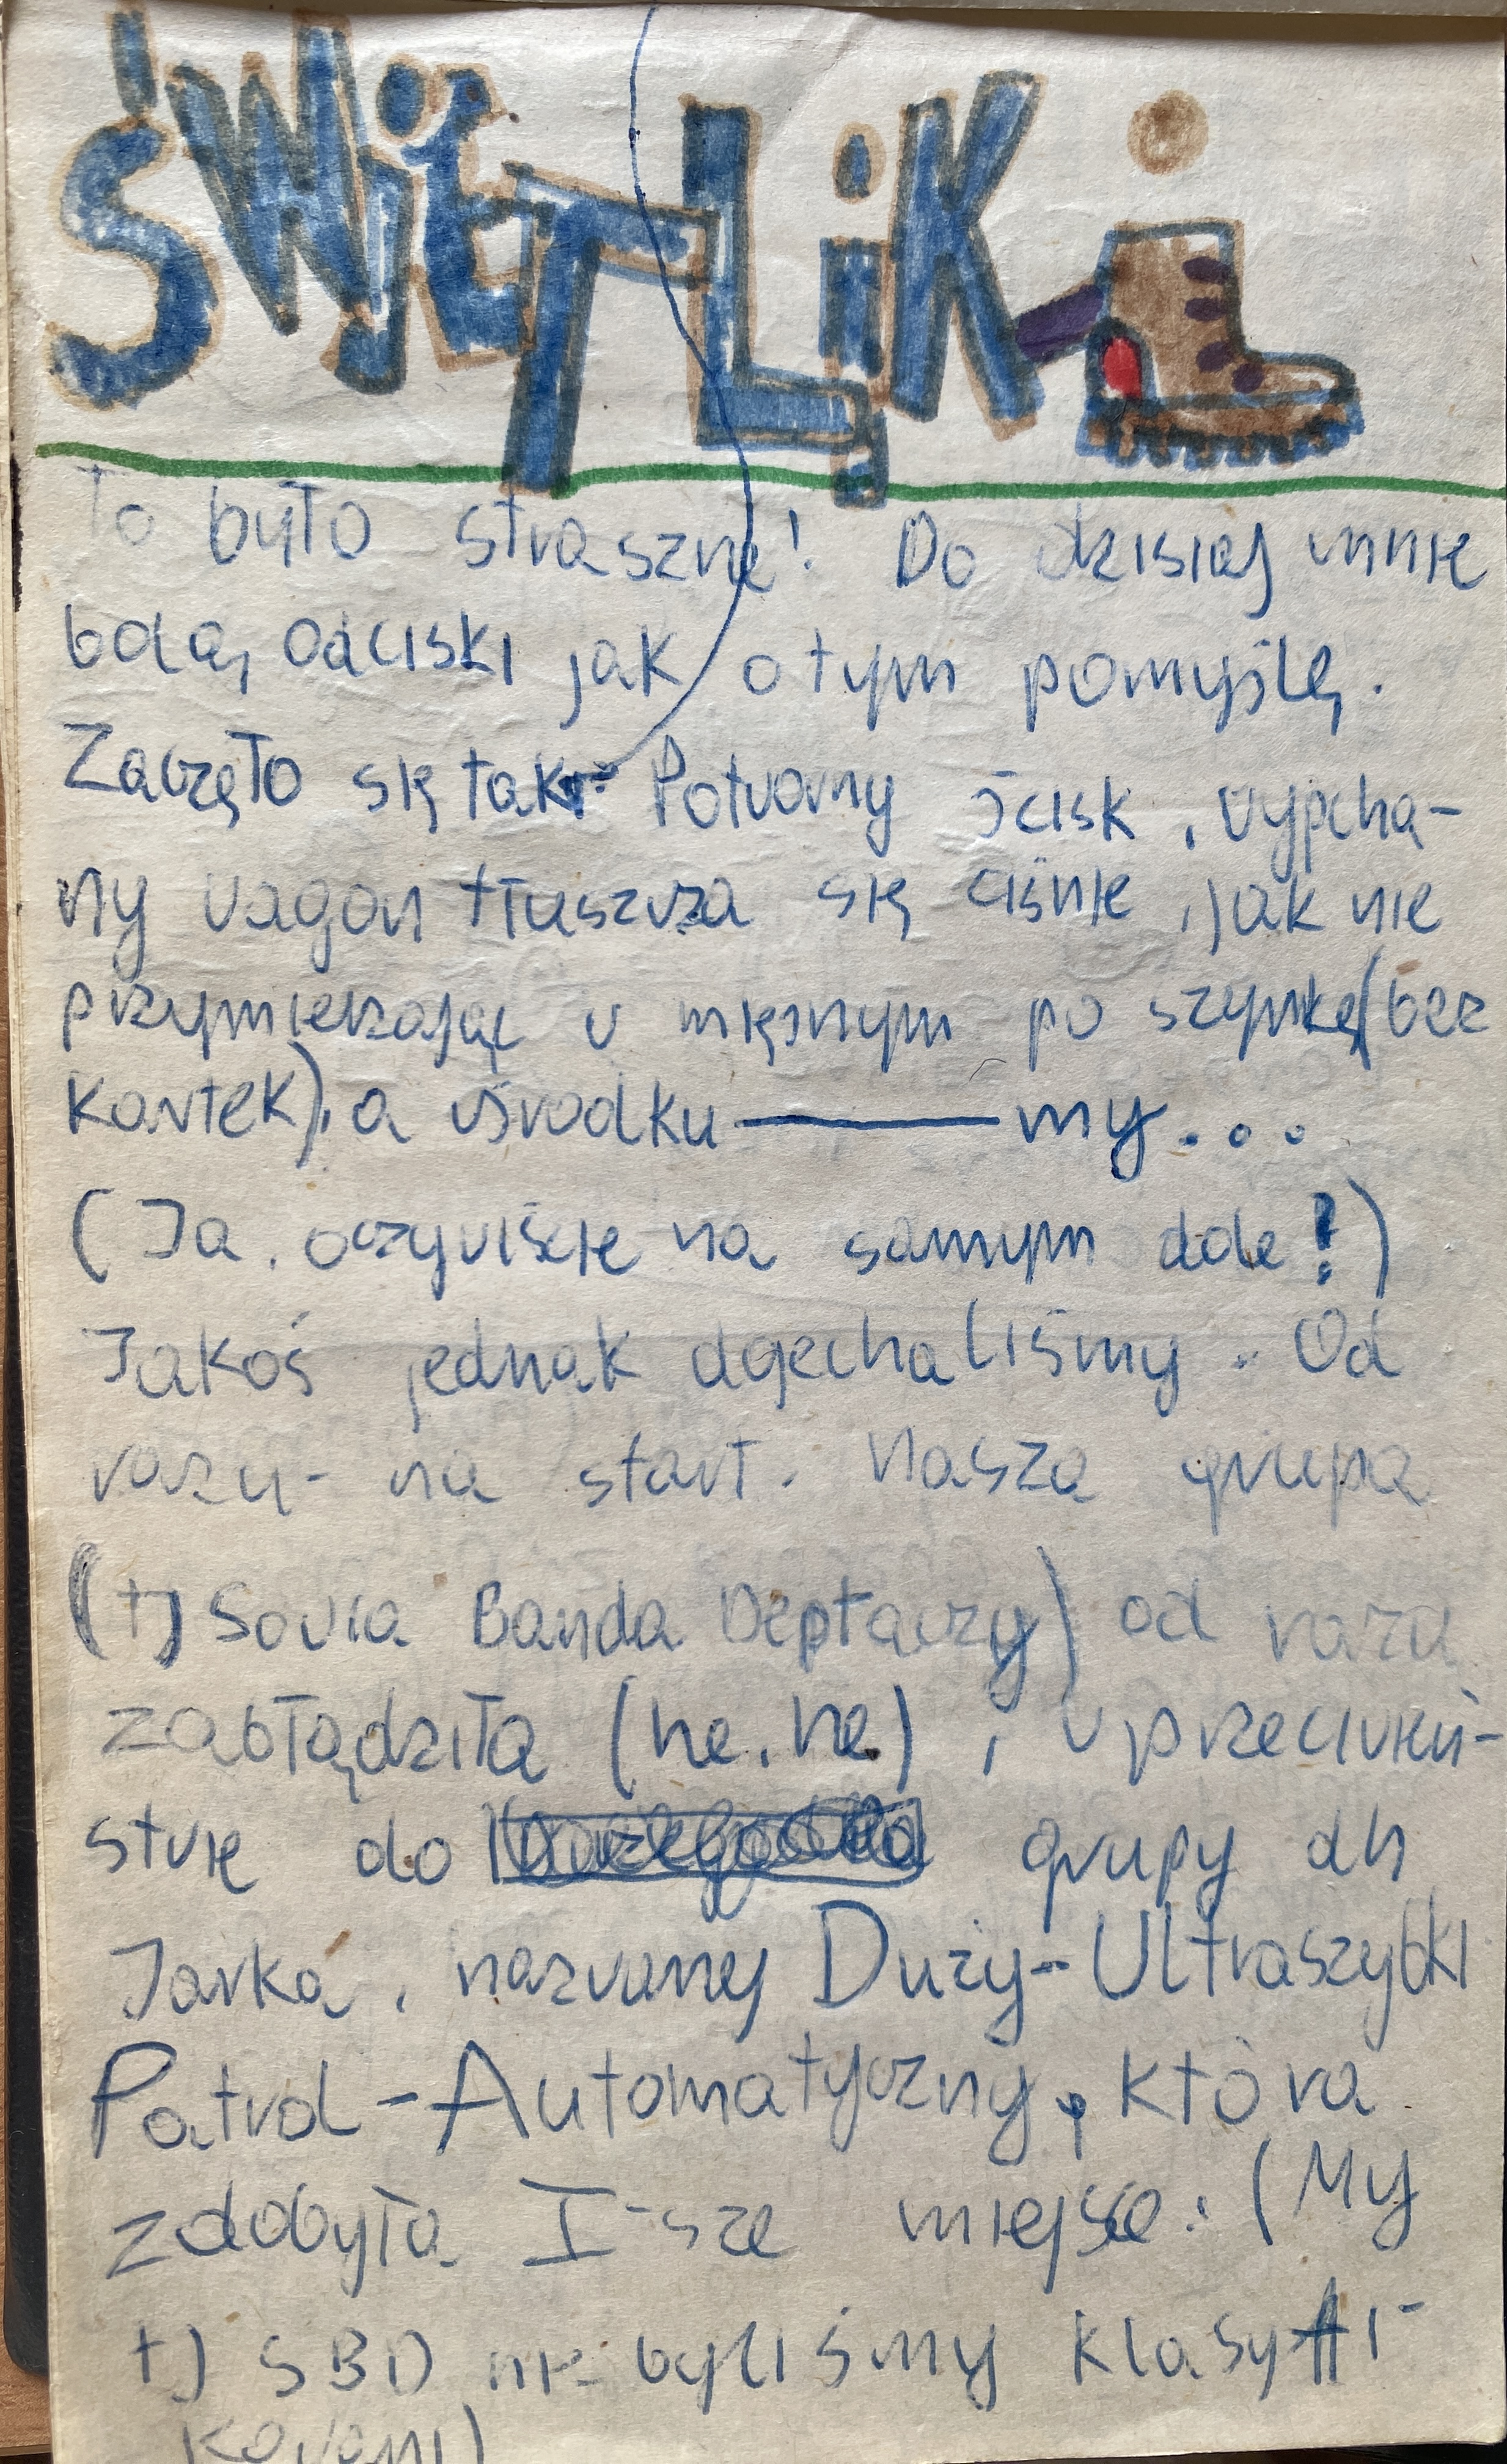 ŚWIETLIKi
To było straszne! Do dzisiaj mnie
bolą odciski jak o tym pomyślę.
Zaczęło się tak: Potworny ścisk, wypcha-
ny wagon tłuszcza się ciśnie, jak nie
przymierzając w mięsnym po szynkę (bez
kartek), a wśrodku — my...
(Ja, oczywiście na samym dole!)
Jakoś jednak dojechaliśmy. Od
razu - na start. Nasza grupa
(+) Sowia Banda Deptaczy) od razu
zabłądziła (he, he), w przeciwień-
stwie do grupy dh
Jarka, nazwanej Duży-Ultraszybki
Patrol-Automatyczny, która
zdobyła I-sze miejsce. (My
+) SBD nie byliśmy klasyfi-
kowani)